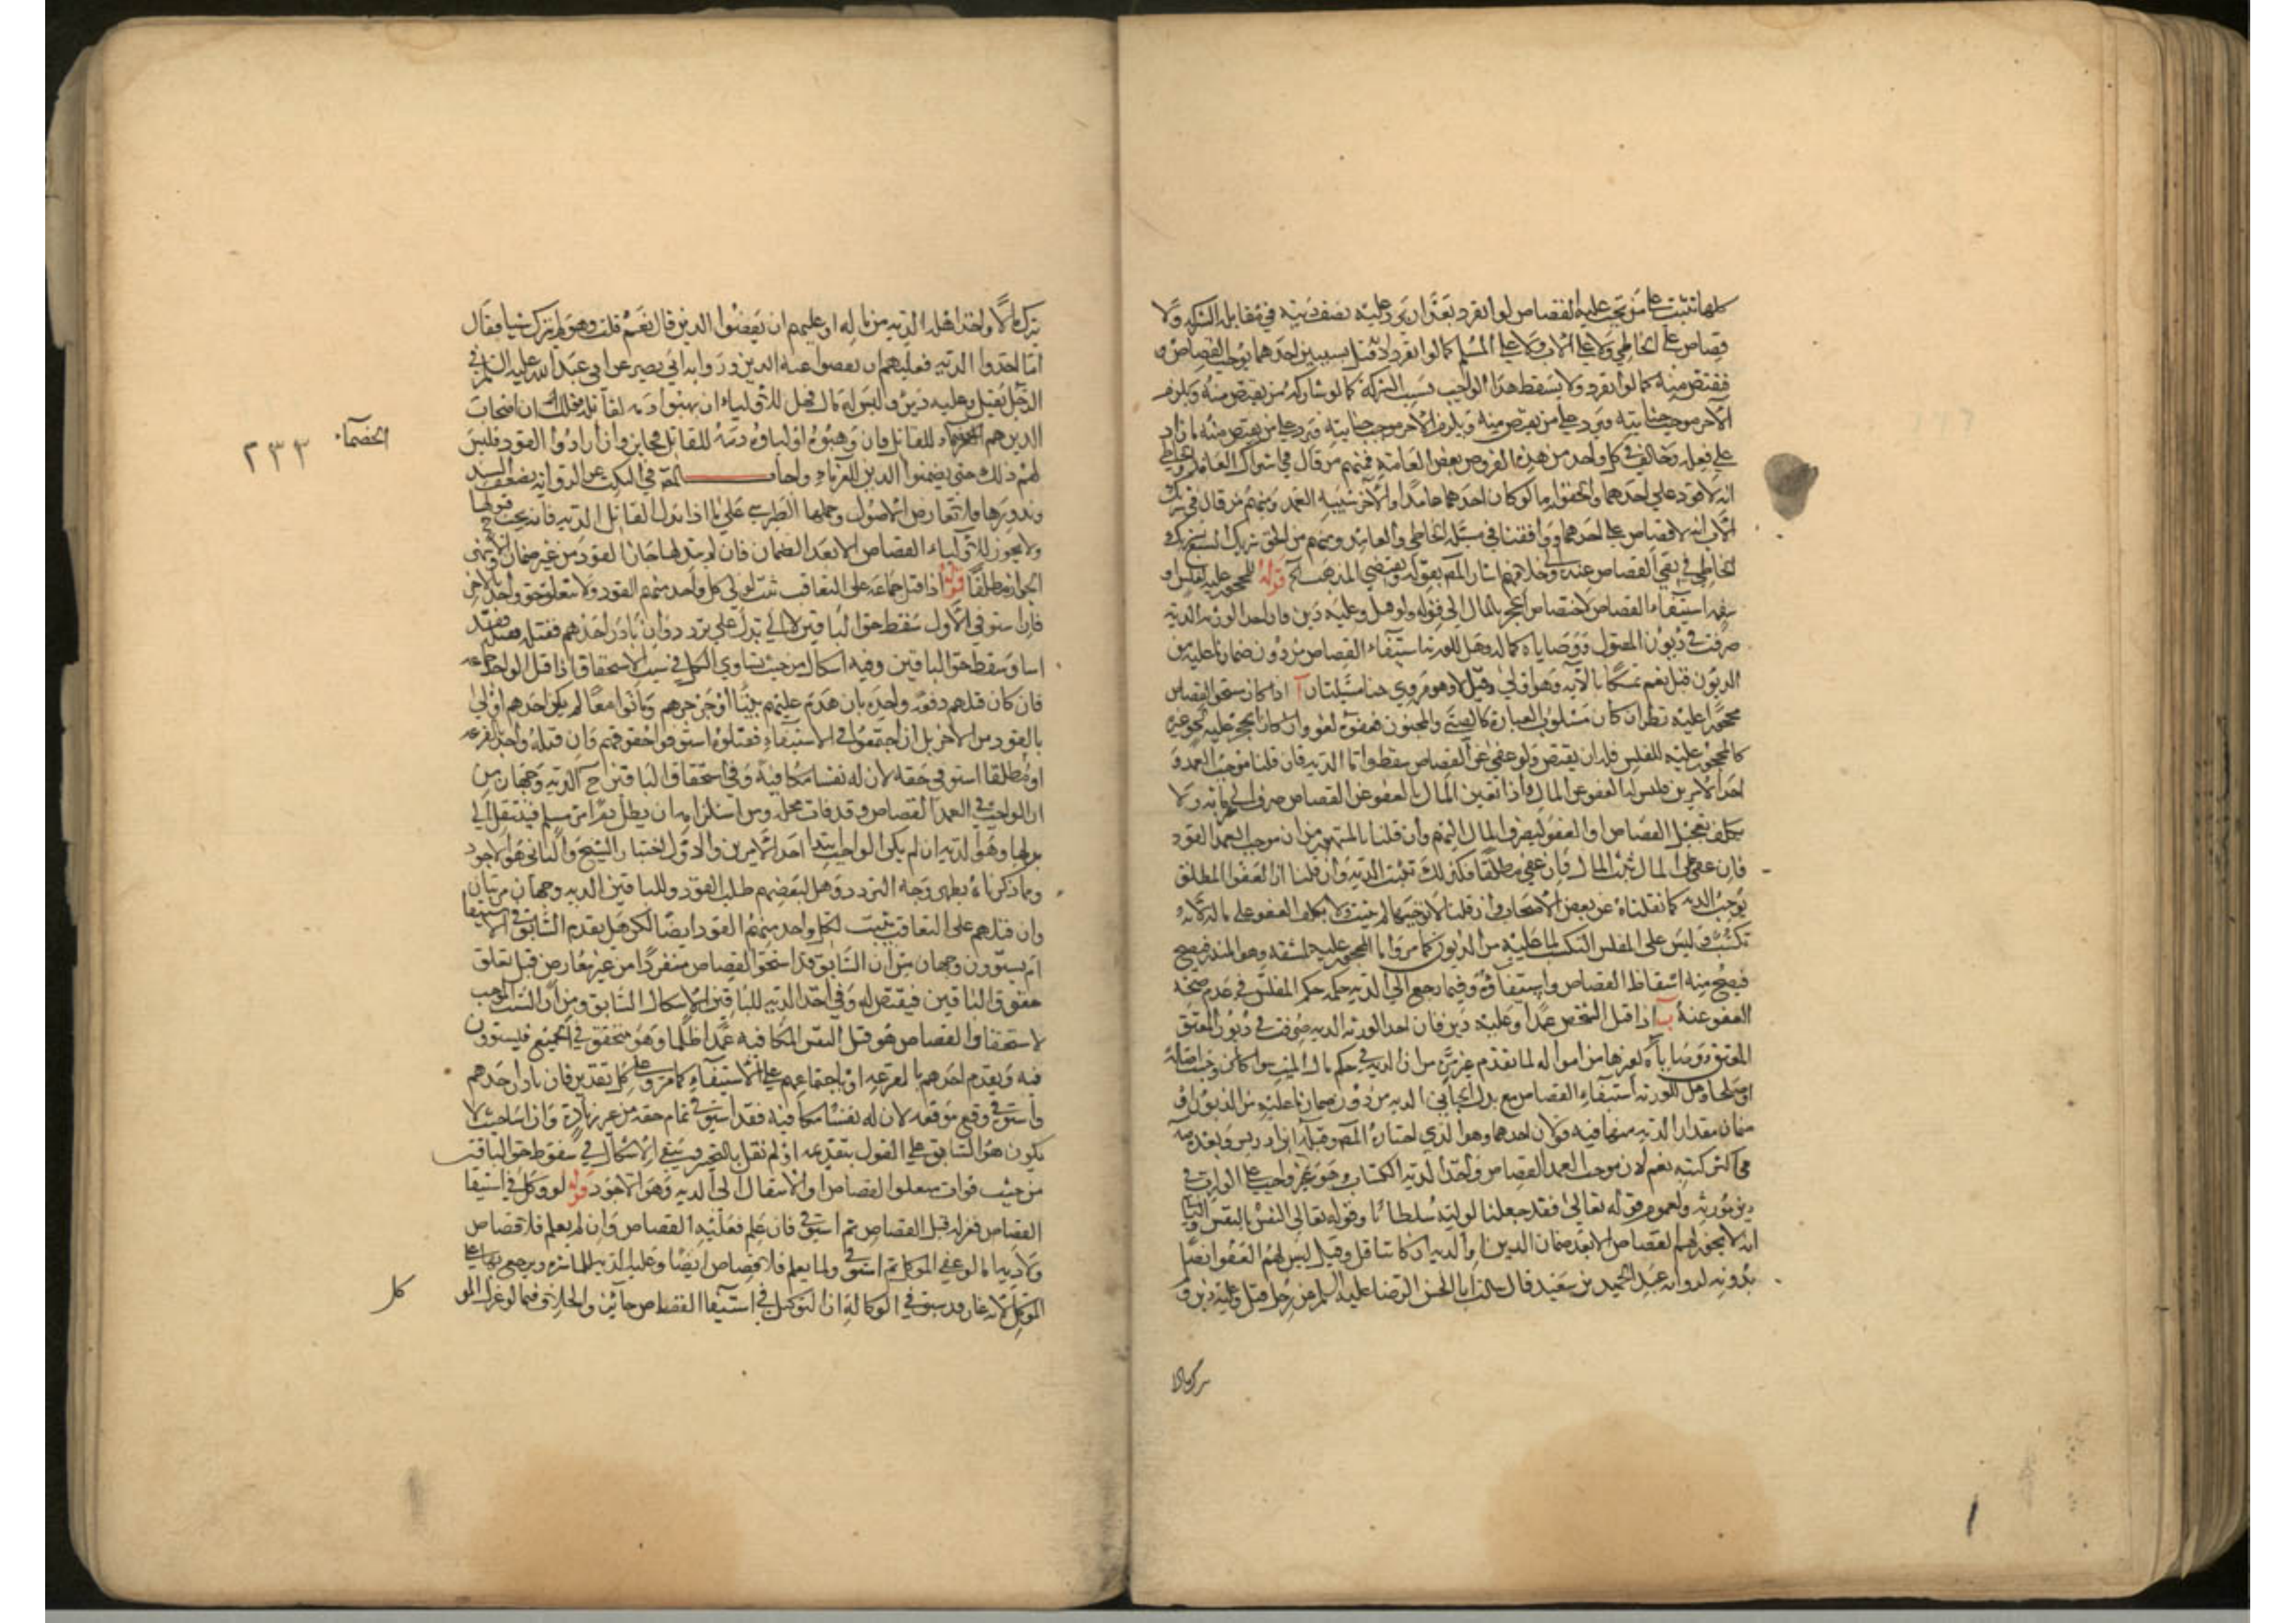 كلها تثبت على من يجب عليه القصاص لو انفرد بعد ان يرد عليه نصف ديته في مقابلة الشركة ولا
قصاص على الخاطي ولا على الاب ولا على المسلم كما لو انفرد اذ قتل بسببين احدهما يوجب القصاص و
فيقتص منه كما لو انفرد ولا يسقط هذا الواجب بسبب الشركة كما لو شاركه من يقتص منه ويلزم
الآخر موجب جنايته فيرد على من يقتص منه ويلزم الآخر موجب جنايته فيرد على من يقتص منه ما زاد
على فعله وخالف في كل واحد من هذه الفروض بعض العامة فمنهم من قال في اشتراك العامد والخاطي
انه لا قود على احدهما والحقوا به ما لو كان احدهما عامدا والآخر شبيه العمد ومنهم من قال في شريك
الاب انه لا قصاص على احدهما ووافقنا في مسئلة الخاطي والعامد ومنهم من الحق شريك السبع بشريك
الخاطي في نفي القصاص عنه والى خلافهم اشار المصـ بقوله ويقتضي المذهب الخ قوله للمحجور عليه لفلس او
سفه استيفاء القصاص لاختصاص الحجر بالمال الى قوله ولو قتل وعليه دين فان اخذ الورثة الدية
صرفت في ديون المقتول ووصاياه كماله وهل للورثة استيفاء القصاص من دون ضمان ما عليه من
الديون قيل نعم تمسكا بالآية وهو اولى وقيل لا وهو مروي هنا مسئلتان آ اذا كان مستحق القصاص
محجورا عليه نظر ان كان مسلوب العبارة كالصبي والمجنون فعفوه لغو وان كان الحجر عليه لحق غيره
كالمحجور عليه للفلس فله ان يقتص ولو عفى عن القصاص سقط واما الدية فان قلنا موجب العمد
احد الامرين فليس له العفو عن المال واذا تعين المال بالعفو عن القصاص صرف الى غرمائه ولا
يكلف تعجيل القصاص او العفو ليصرف المال اليهم وان قلنا بالمشهور من ان موجب العمد القود
فان عفى على المال ثبت المال فان عفى مطلقا فكذلك تثبت الدية وان قلنا ان العفو المطلق
يوجب الدية كما نقلناه عن بعض الاصحاب وان قلنا لا يوجبها لم يثبت ولا يكلف العفو على مال لانه
تكسب وليس على المفلس التكسب لما عليه من الديون كما مر واما المحجور عليه لسفه وهو المبذر فيصح
فيصح منه اسقاط القصاص واستيفاؤه وفيما رجع الى الدية حكمه حكم المفلس في عدم صحة
العفو عنه ب اذا قتل الشخص عمدا وعليه دين فان اخذ الورثة الدية صرفت في ديون المقتول
ووصاياه كغيرها من امواله لما تقدم غير مرة من ان الدية في حكم مال الميت سواء كانت وجبت اصالة
او صلحا وهل للورثة استيفاء القصاص مع بذل الجاني الدية من دون ضمان ما عليه من الديون او
ضمان مقدار الدية منها فيه قولان احدهما وهو الذي اختاره المصـ وقبله ابن ادريس وبعده
في اكثر كتبه نعم لان موجب العمد القصاص واخذ الدية اكتساب وهو غير واجب على الوارث في
دين مورثه ولعموم قوله تعالى فقد جعلنا لوليه سلطانا وقوله تعالى النفس بالنفس والثاني
انه لا يجوز لهم القصاص الا بعد ضمان الدين او الدية ان كانت اقل وقيل ليس لهم العفو ايضا
بدونه لرواية عبد الحميد بن سعيد قال سالت ابا الحسن الرضا عليه السلم عن رجل قتل وعليه دين و
يترك مالا
يترك مالا واخذ اهله الدية من قاتله او عليهم ان يقضوا الدين قال نعم قلت وهو لم يترك شيا فقال
اما اخذوا الدية فعليهم ان يقضوا عنه الدين ورواية ابي بصير عن ابي عبد الله عليه السلم في
الرجل يقتل وعليه دين وليس له مال فهل للاولياء ان يهبوا دمه لقاتله فقال ان اصحاب
الدين هم الخصماء للقاتل فان وهبوا اولياؤه دمه للقاتل فجايز وان ارادوا القود فليس
الخصماء
٢٣٢
لهم ذلك حتى يضمنوا الدين للغرماء واجاب المصـ في النكت عن الرواية بضعف السند
وندورها فلا تعارض الاصول وحملها الطبرسي على ما اذا بذل القاتل الدية فانه يجب قبولها
ولا يجوز للاولياء القصاص الا بعد الضمان فان لم يبذلها جاز القود من غير ضمان والاقوى
الجواز مطلقا قوله اذا قتل جماعة على التعاقب ثبت لولي كل واحد منهم القود ولا يتعلق حق واحد بالاخر
فان استوفى الاول سقط حق الباقين لا الى بدل على تردد وان بادر احدهم فقتله فقد
اساء وسقط حق الباقين وفيه اشكال من حيث تساوي الكل في سبب الاستحقاق اذا قتل الواحد جماعة
فان كان قتلهم دفعة واحدة بان هدم عليهم بيتا او جرحهم وماتوا معا لم يكن احدهم اولى
بالقود من الآخر بل ان اجتمعوا في الاستيفاء فقتلوه استوفوا حقوقهم وان قتله واحد بقرعة
او مطلقا استوفى حقه لان له نفسا مكافية وفي استحقاق الباقين ح الدية وجهان من
ان الواجب في العمد القصاص وقد فات محله ومن استلزامه ان يطل دم امرئ مسلم فينتقل الى
بدلها وهو الدية ان لم يكن الواجب ابتدا احد الامرين والاول اختيار الشيخ والثاني هو الاجود
ومما ذكرناه يظهر وجه التردد وهل لبعضهم طلب القود وللباقين الدية وجهان مرتبان
وان قتلهم على التعاقب ثبت لكل واحد منهم القود ايضا لكن هل يقدم السابق في الاستيفا
ام يستوون وجهان من ان السابق قد استحق القصاص منفردا من غير معارض قبل تعلق
حقوق الباقين فيقتص له وفي اخذ الدية للباقين الاشكال السابق ومن ان السبب الموجب
لاستحقاق القصاص هو قتل النفس المكافية عمدا ظلما وهو متحقق في الجميع فيستوون
فيه ويقدم احدهم بالقرعة او باجتماعهم على الاستيفاء كما مر وعلى كل تقدير فان بادر احدهم
واستوفى وقع موقعه لان له نفسا مكافية فقد استوفى تمام حقه من غير زيادة وان اساء حيث لا
يكون هو السابق على القول بتقديمه او لم نقل بالتخيير ويبقى الاشكال في سقوط حق الباقين
من حيث فوات متعلق القصاص او الانتقال الى الدية وهو الاجود قوله لو وكل في استيفا
القصاص فعزله قبل القصاص ثم استوفى فان علم فعليه القصاص وان لم يعلم فلا قصاص
ولا دية اما لو عفى الموكل ثم استوفى ولما يعلم فلا قصاص ايضا وعليه الدية للمباشرة ويرجع بها على
الموكل لانه غار قد سبق في الوكالة ان التوكيل في استيفا القصاص جائز والخلاف فيما لو عزل المو
كل